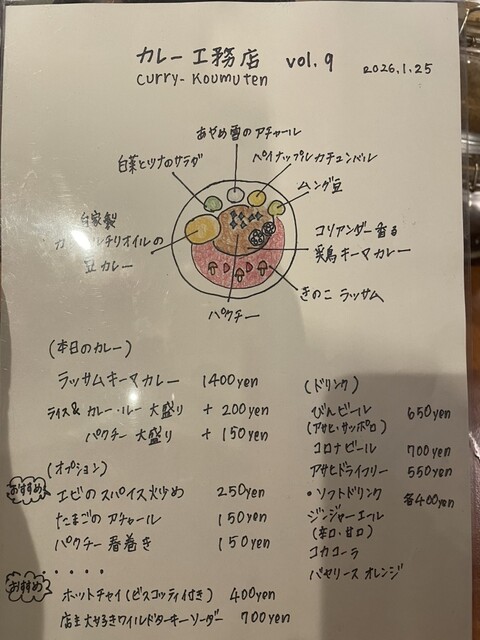 カレー工務店 vol.9 2026.1.25
Curry-Koumuten
あやめ雪のアチャール
白菜とツナのサラダ
パイナップルカチュンバル
ムング豆
自家製
チリオイルの
豆カレー
コリアンダー香る
鶏キーマカレー
きのこ ラッサム
パクチー
(本日のカレー)
ラッサムキーマカレー 1400yen
ライス&カレー・ルー 大盛り +200yen
パクチー 大盛り +150yen
(オプション)
おすすめ エビのスパイス炒め 250yen
たまごのアチャール 150yen
パクチー春巻き 150yen
おすすめ ホットチャイ(ビスコッティ付き) 400yen
店主大好きワイルドターキーソーダー 700yen
(ドリンク)
びんビール 650yen
(アサヒ・サッポロ)
コロナビール 700yen
アサヒドライフリー 550yen
・ソフトドリンク 各400yen
ジンジャーエール
(辛口・甘口)
コカコーラ
バヤリース オレンジ